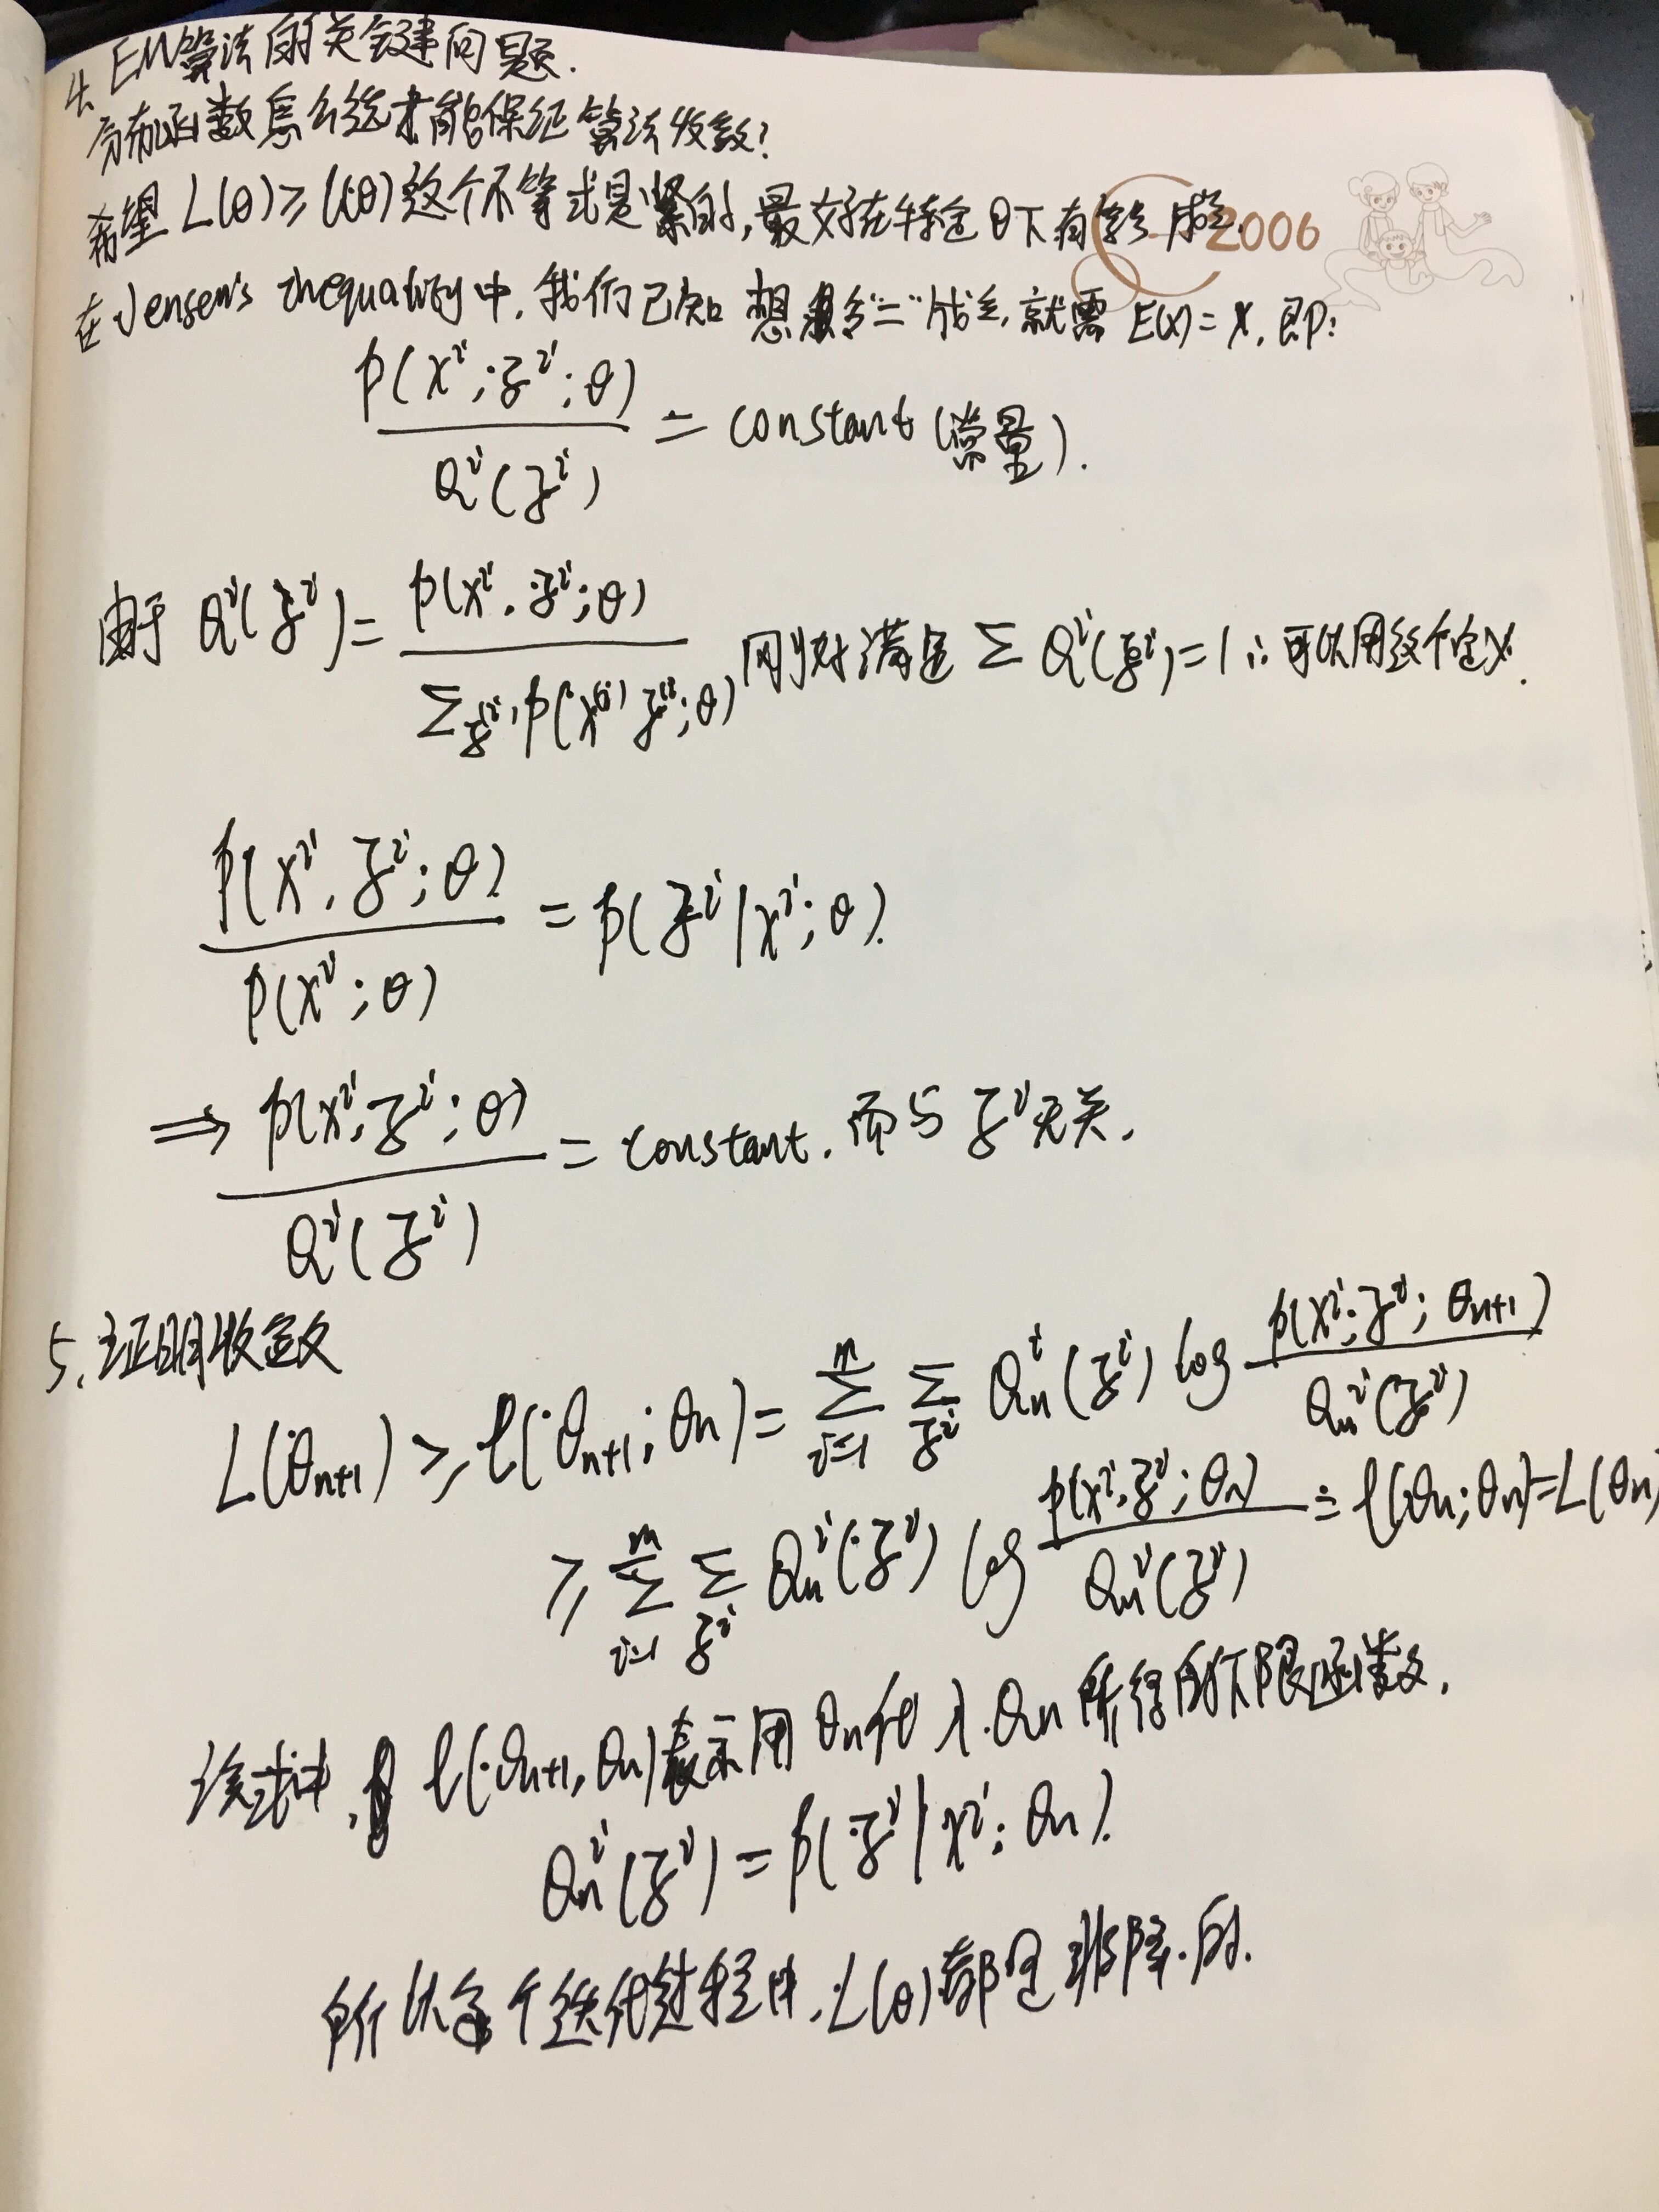 4. EM算法的关键问题.
分布函数怎么选才能保证算法收敛?
希望 L(θ) ≥ l(θ) 这个不等式是紧的, 最好在特定θ下有等号成立.
2006
在 Jensen's Inequality 中, 我们已知 想 "=" 成立, 就需 E(x) = x, 即:
p(xⁱ; zⁱ; θ) / Qⁱ(zⁱ) = constant (常量).
由于 Qⁱ(zⁱ) = p(xⁱ, zⁱ; θ) / Σ_zⁱ p(x⁽ⁱ⁾ z⁽ⁱ⁾; θ) 刚好满足 Σ Qⁱ(zⁱ) = 1 ∴ 可以用这个定义.
p(xⁱ, zⁱ; θ) / p(xⁱ; θ) = p(zⁱ | xⁱ; θ).
⇒ p(xⁱ; zⁱ; θ) / Qⁱ(zⁱ) = constant. 而与 zⁱ 无关.
5. 证明收敛
L(θₙ₊₁) ≥ l(θₙ₊₁; θₙ) = Σᵢ₌₁ᵐ Σ_zⁱ Qₙⁱ(zⁱ) log p(xⁱ; zⁱ; θₙ₊₁) / Qₙⁱ(zⁱ)
≥ Σᵢ₌₁ᵐ Σ_zⁱ Qₙⁱ(zⁱ) log p(xⁱ, zⁱ; θₙ) / Qₙⁱ(zⁱ) = l(θₙ; θₙ) = L(θₙ)
该式中, l(θₙ₊₁, θₙ) 表示用 θₙ 代入 Qₙ 所得的下限函数.
Qₙⁱ(zⁱ) = p(zⁱ | xⁱ; θₙ).
所以每个迭代过程中, L(θ) 都是非降的.